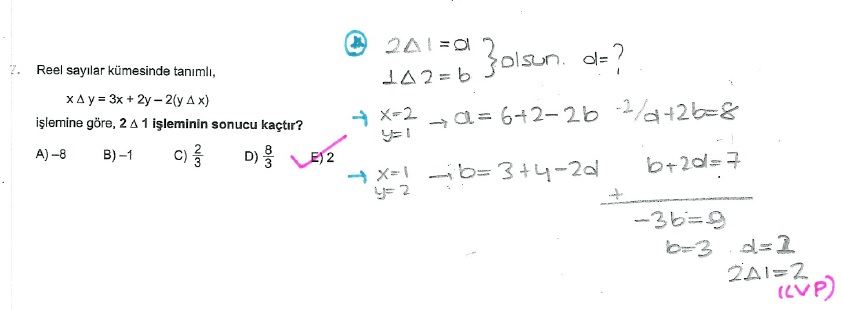 7. Reel sayılar kümesinde tanımlı,
x Δ y = 3x + 2y – 2(y Δ x)
işlemine göre, 2 Δ 1 işleminin sonucu kaçtır?
A) –8 B) –1 C) 2/3 D) 8/3 E) 2
2Δ1 = a
1Δ2 = b } olsun. a=?
→ x=2 y=1 → a = 6+2-2b -2/a+2b=8
→ x=1 y=2 → b = 3+4-2a b+2a=7
+
-3b=9
b=3 a=2
2Δ1=2
(CVP)